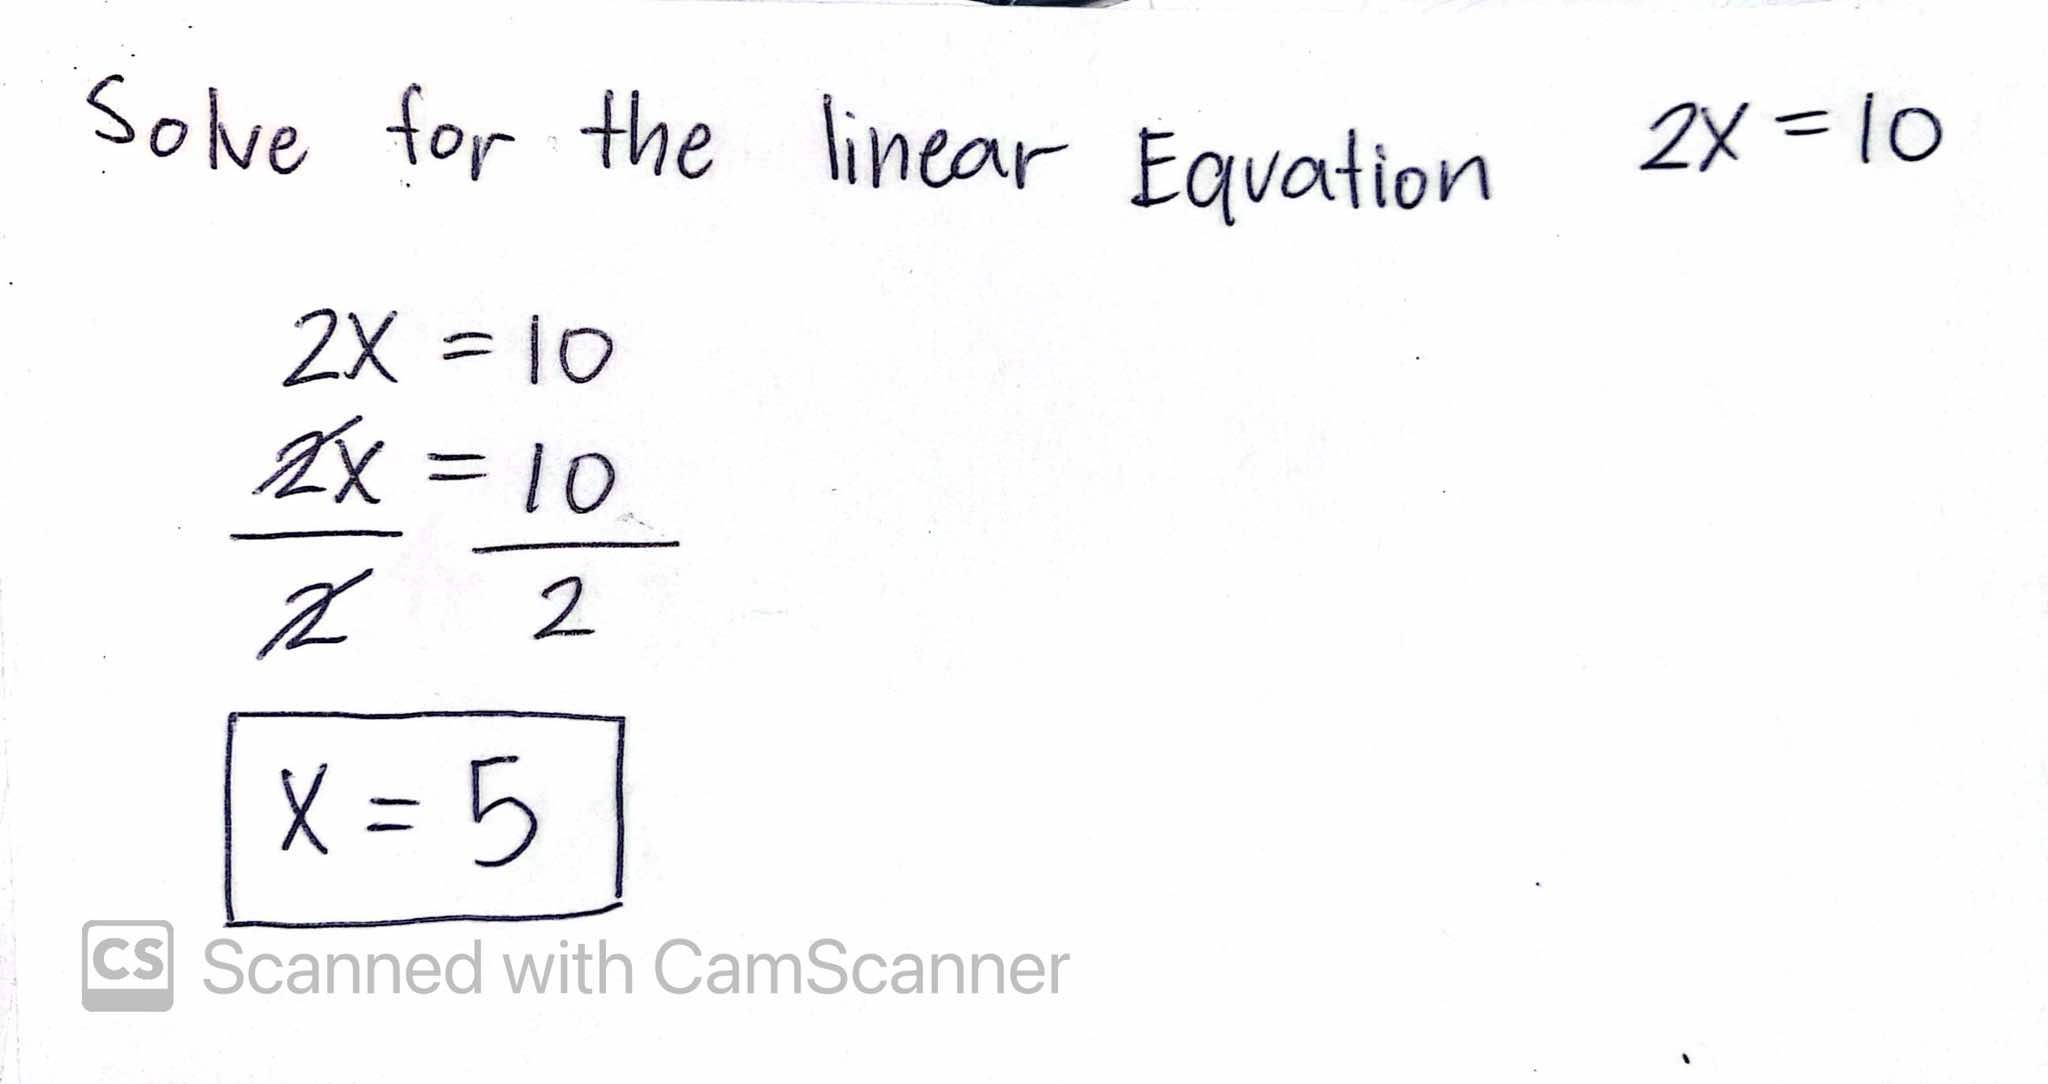 Solve for the linear Equation 2x = 10
2x = 10
2x = 10
2 2
x = 5
CS Scanned with CamScanner